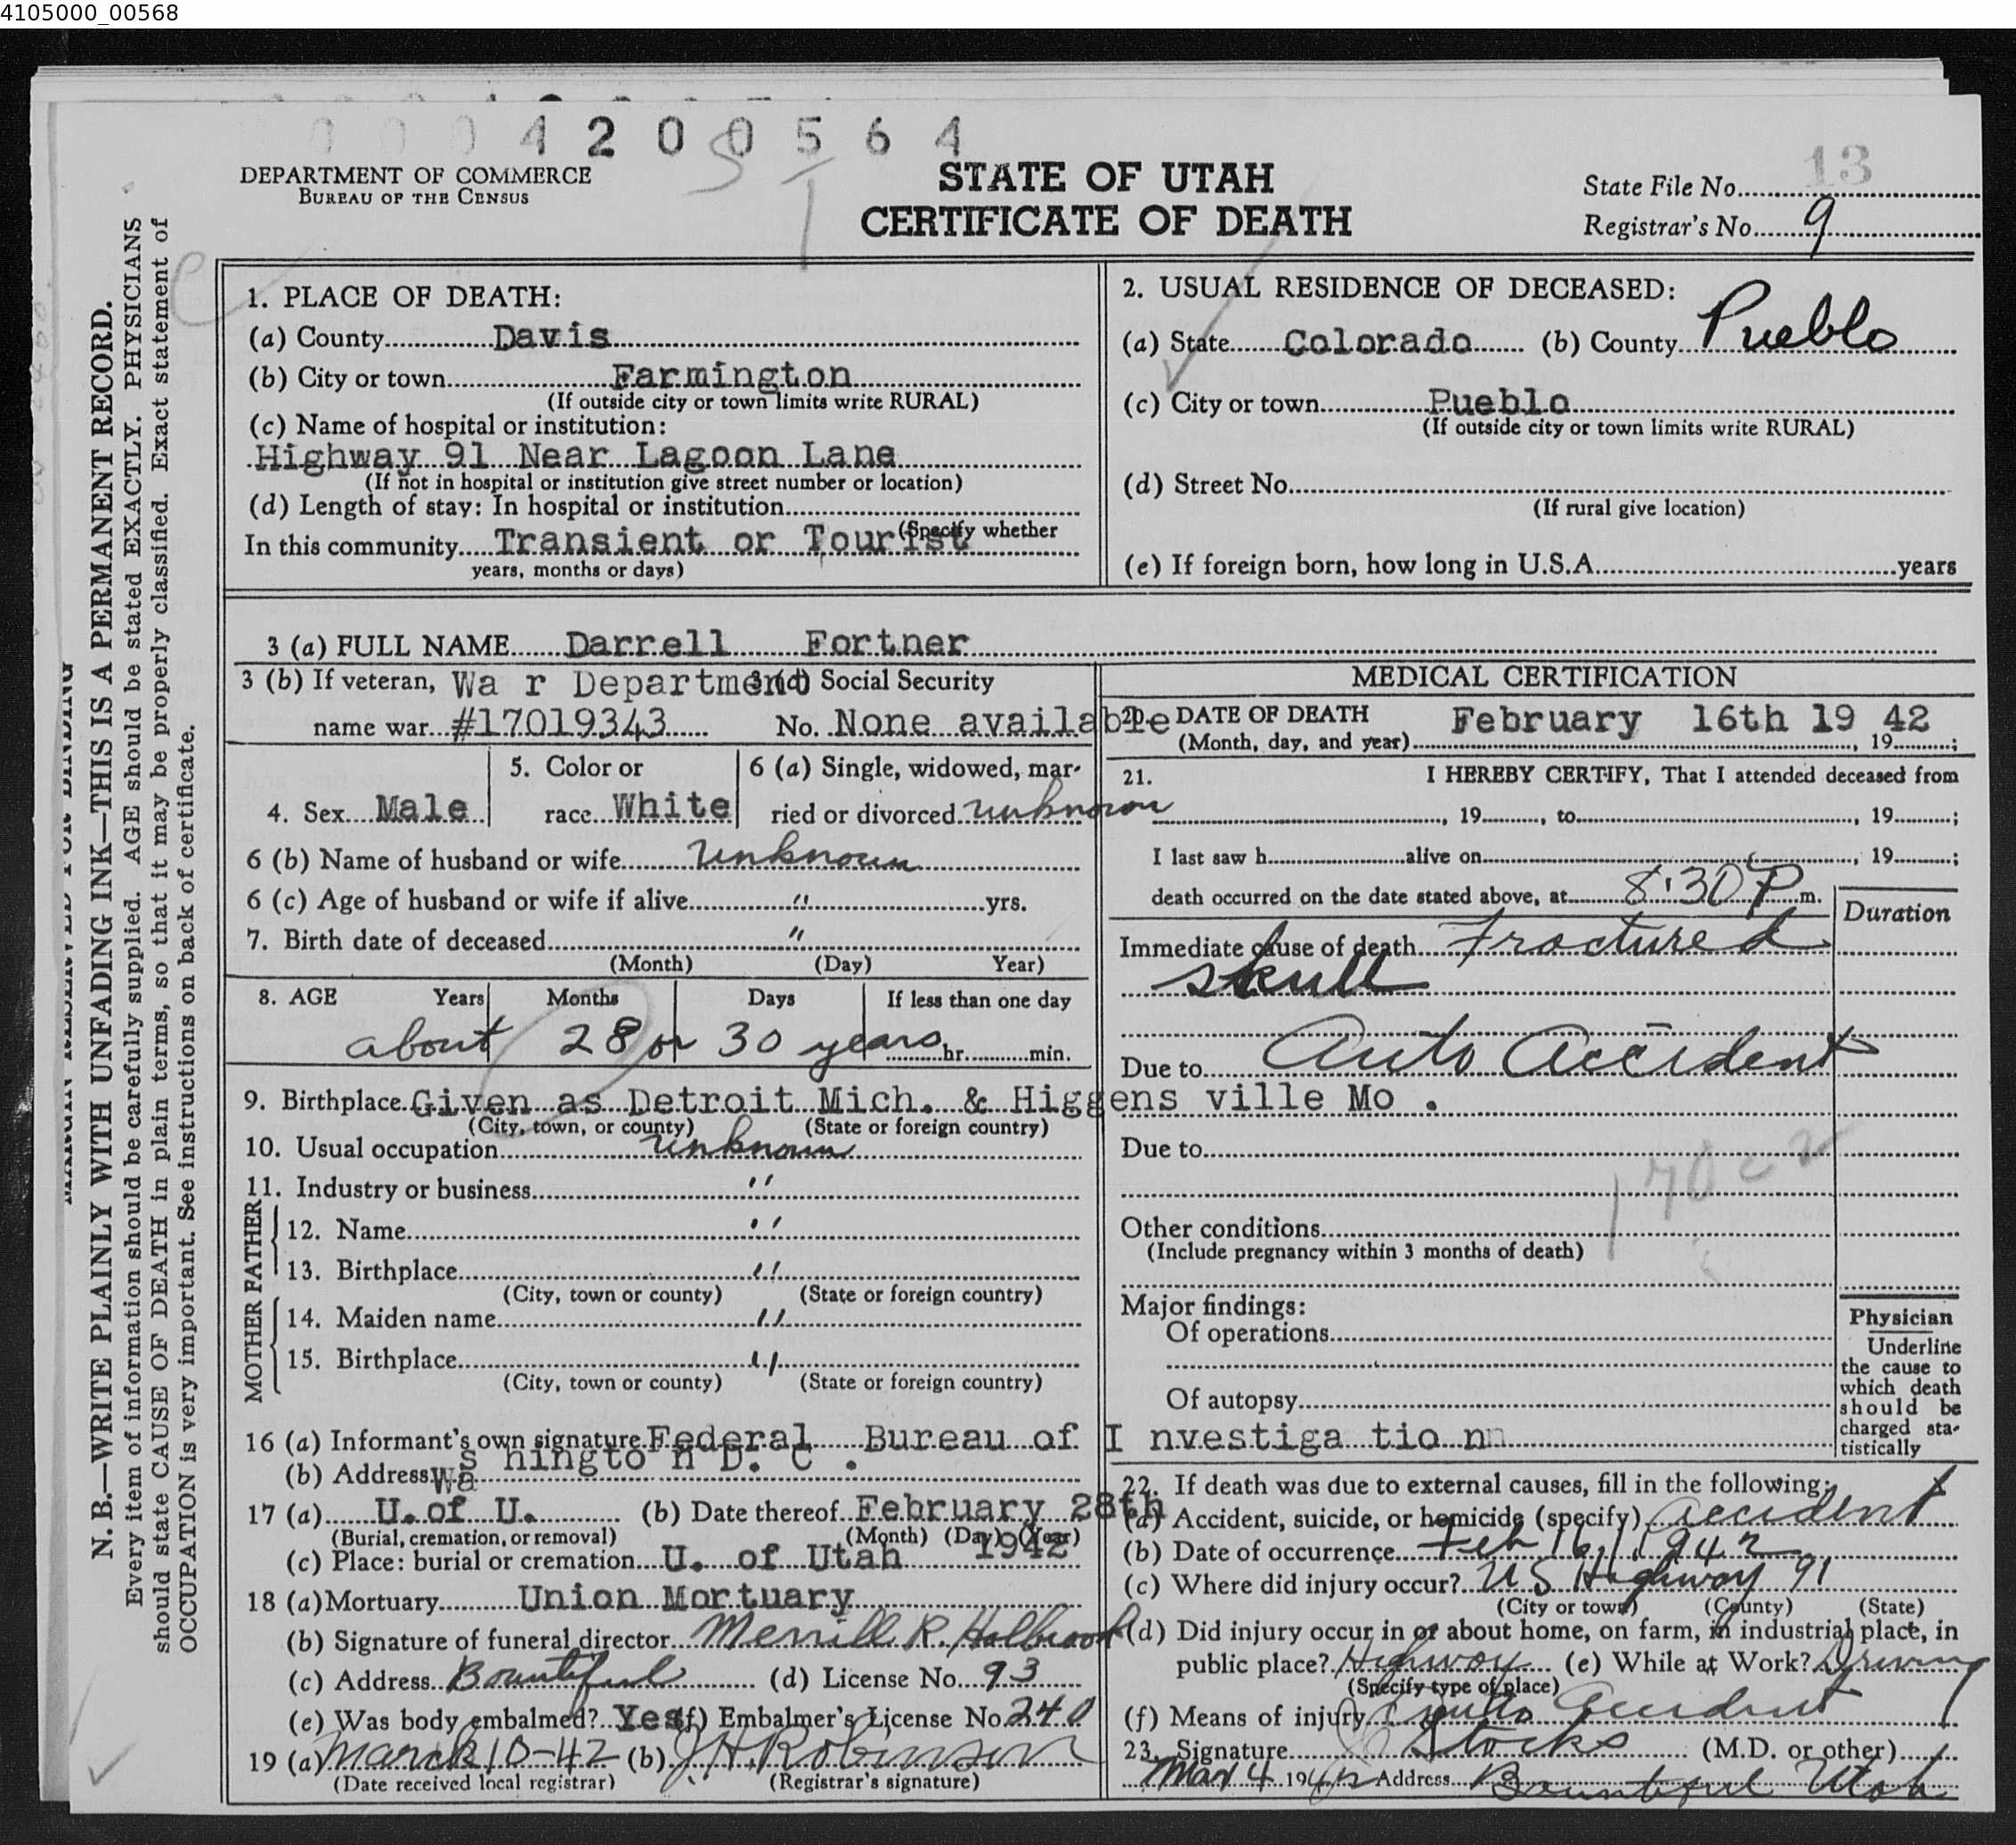 4105000_00568
0004200564
DEPARTMENT OF COMMERCE
BUREAU OF THE CENSUS
STATE OF UTAH
CERTIFICATE OF DEATH
State File No. 13
Registrar's No. 9
N. B.—WRITE PLAINLY WITH UNFADING INK—THIS IS A PERMANENT RECORD.
Every item of information should be carefully supplied. AGE should be stated EXACTLY. PHYSICIANS
should state CAUSE OF DEATH in plain terms, so that it may be properly classified. Exact statement of
OCCUPATION is very important. See instructions on back of certificate.
1. PLACE OF DEATH:
(a) County Davis
(b) City or town Farmington
(If outside city or town limits write RURAL)
(c) Name of hospital or institution:
Highway 91 Near Lagoon Lane
(If not in hospital or institution give street number or location)
(d) Length of stay: In hospital or institution
(Specify whether
In this community Transient or Tourist
years, months or days)
2. USUAL RESIDENCE OF DECEASED:
(a) State Colorado (b) County Pueblo
(c) City or town Pueblo
(If outside city or town limits write RURAL)
(d) Street No.
(If rural give location)
(e) If foreign born, how long in U.S.A. years
3 (a) FULL NAME Darrell Fortner
3 (b) If veteran, Wa r Department
name war #17019343
Social Security
No. None available
4. Sex Male
5. Color or
race White
6 (a) Single, widowed, mar-
ried or divorced unknown
6 (b) Name of husband or wife unknown
6 (c) Age of husband or wife if alive " yrs.
7. Birth date of deceased "
(Month) (Day) Year)
8. AGE Years Months Days If less than one day
about 28 or 30 years hr. min.
9. Birthplace Given as Detroit Mich. & Higgens ville Mo .
(City, town, or county) (State or foreign country)
10. Usual occupation unknown
11. Industry or business "
FATHER
12. Name "
13. Birthplace "
(City, town or county) (State or foreign country)
MOTHER
14. Maiden name "
15. Birthplace "
(City, town or county) (State or foreign country)
16 (a) Informant's own signature Federal Bureau of I nvestiga tio n
(b) Address Wa s hingto n D. C .
17 (a) U. of U. (b) Date thereof February 28th 1942
(Burial, cremation, or removal) (Month) (Day) (Year)
(c) Place: burial or cremation U. of Utah
18 (a) Mortuary Union Mortuary
(b) Signature of funeral director Merrill R. Holbrook
(c) Address Bountiful (d) License No. 93
(e) Was body embalmed? Yes (f) Embalmer's License No. 240
19 (a) March 10-42 (b) J. H. Robinson
(Date received local registrar) (Registrar's signature)
MEDICAL CERTIFICATION
20. DATE OF DEATH February 16th 19 42
(Month, day, and year) , 19 ;
21. I HEREBY CERTIFY, That I attended deceased from
, 19 , to , 19 ;
I last saw h alive on , 19 ;
death occurred on the date stated above, at 8:30 P m.
Duration
Immediate cause of death Fractured
skull
Due to Auto Accident
Due to
170c2
Other conditions
(Include pregnancy within 3 months of death)
Major findings:
Of operations
Of autopsy
Physician
Underline
the cause to
which death
should be
charged sta-
tistically
22. If death was due to external causes, fill in the following:
(a) Accident, suicide, or homicide (specify) accident
(b) Date of occurrence Feb 16, 1942
(c) Where did injury occur? U S Highway 91
(City or town) (County) (State)
(d) Did injury occur in or about home, on farm, in industrial place, in
public place? Highway (e) While at Work? Driving
(Specify type of place)
(f) Means of injury Auto Accident
23. Signature Stocks (M.D. or other)
Mar 4 1942 Address Bountiful Utah